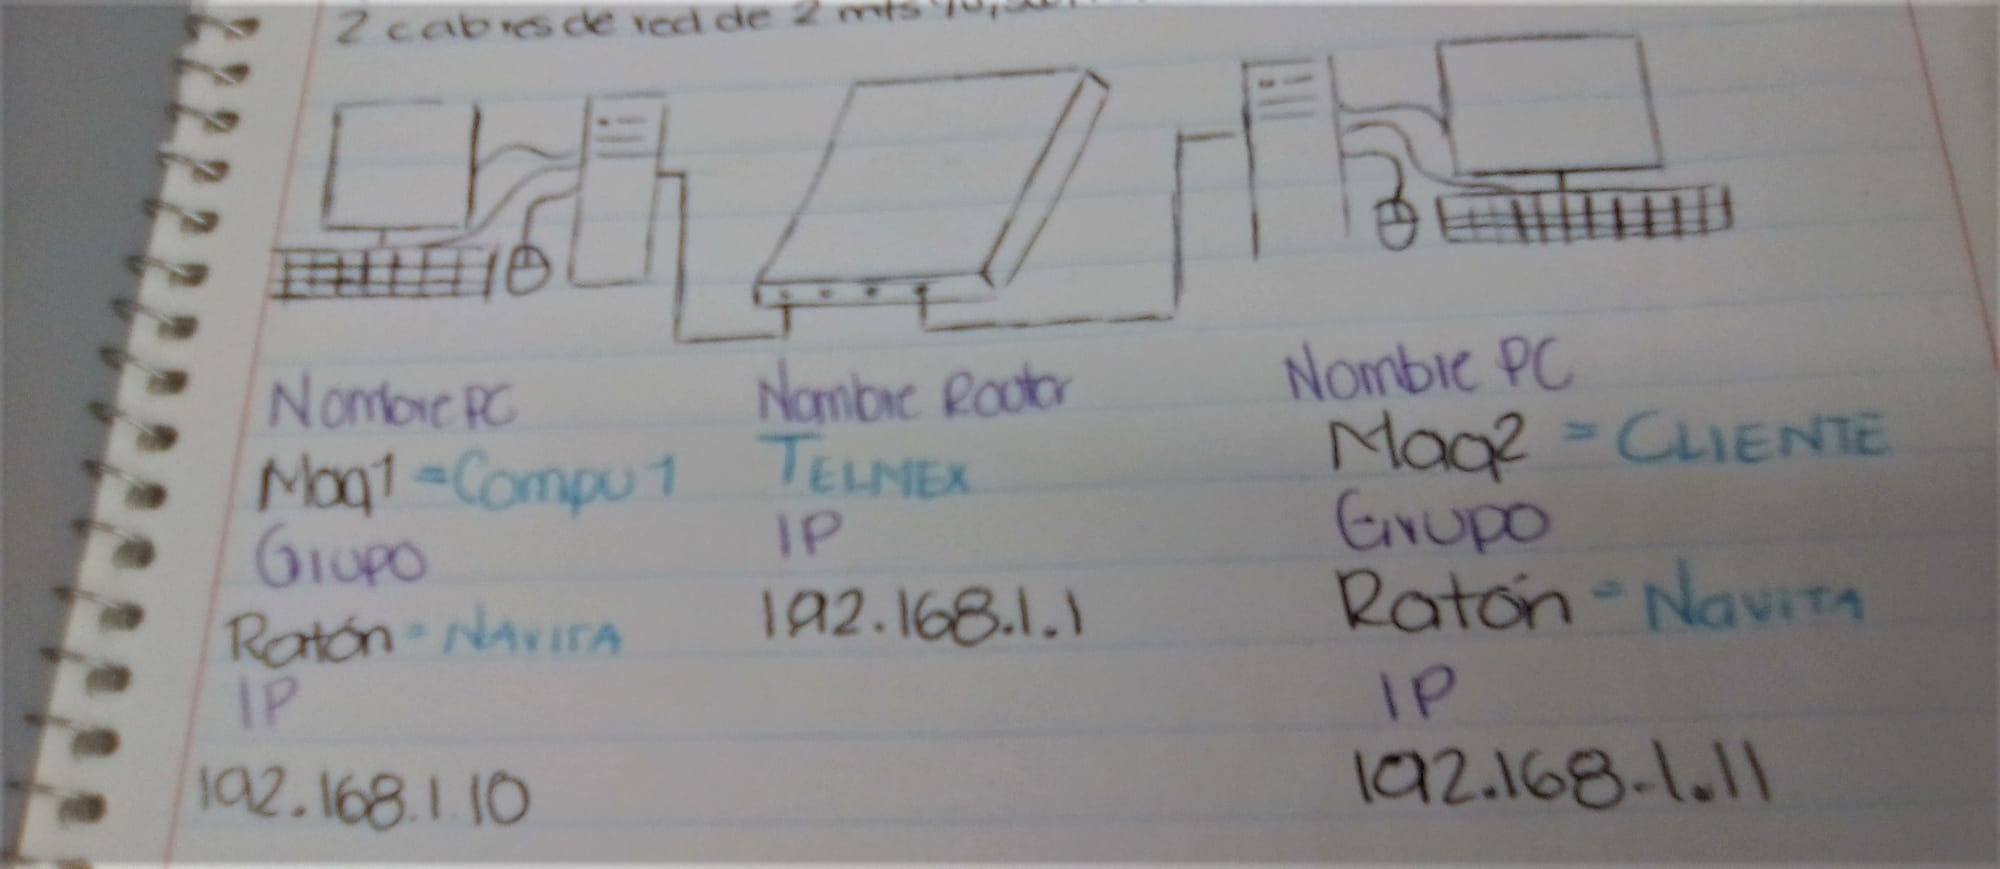 2 cables de red de 2 mts
Nombre PC
Maq1 = Compu1
Grupo
Ratón = NAVITA
IP
192.168.1.10
Nombre Rooter
TELMEX
IP
192.168.1.1
Nombre PC
Maq2 = CLIENTE
Grupo
Ratón = NAVITA
IP
192.168.1.11